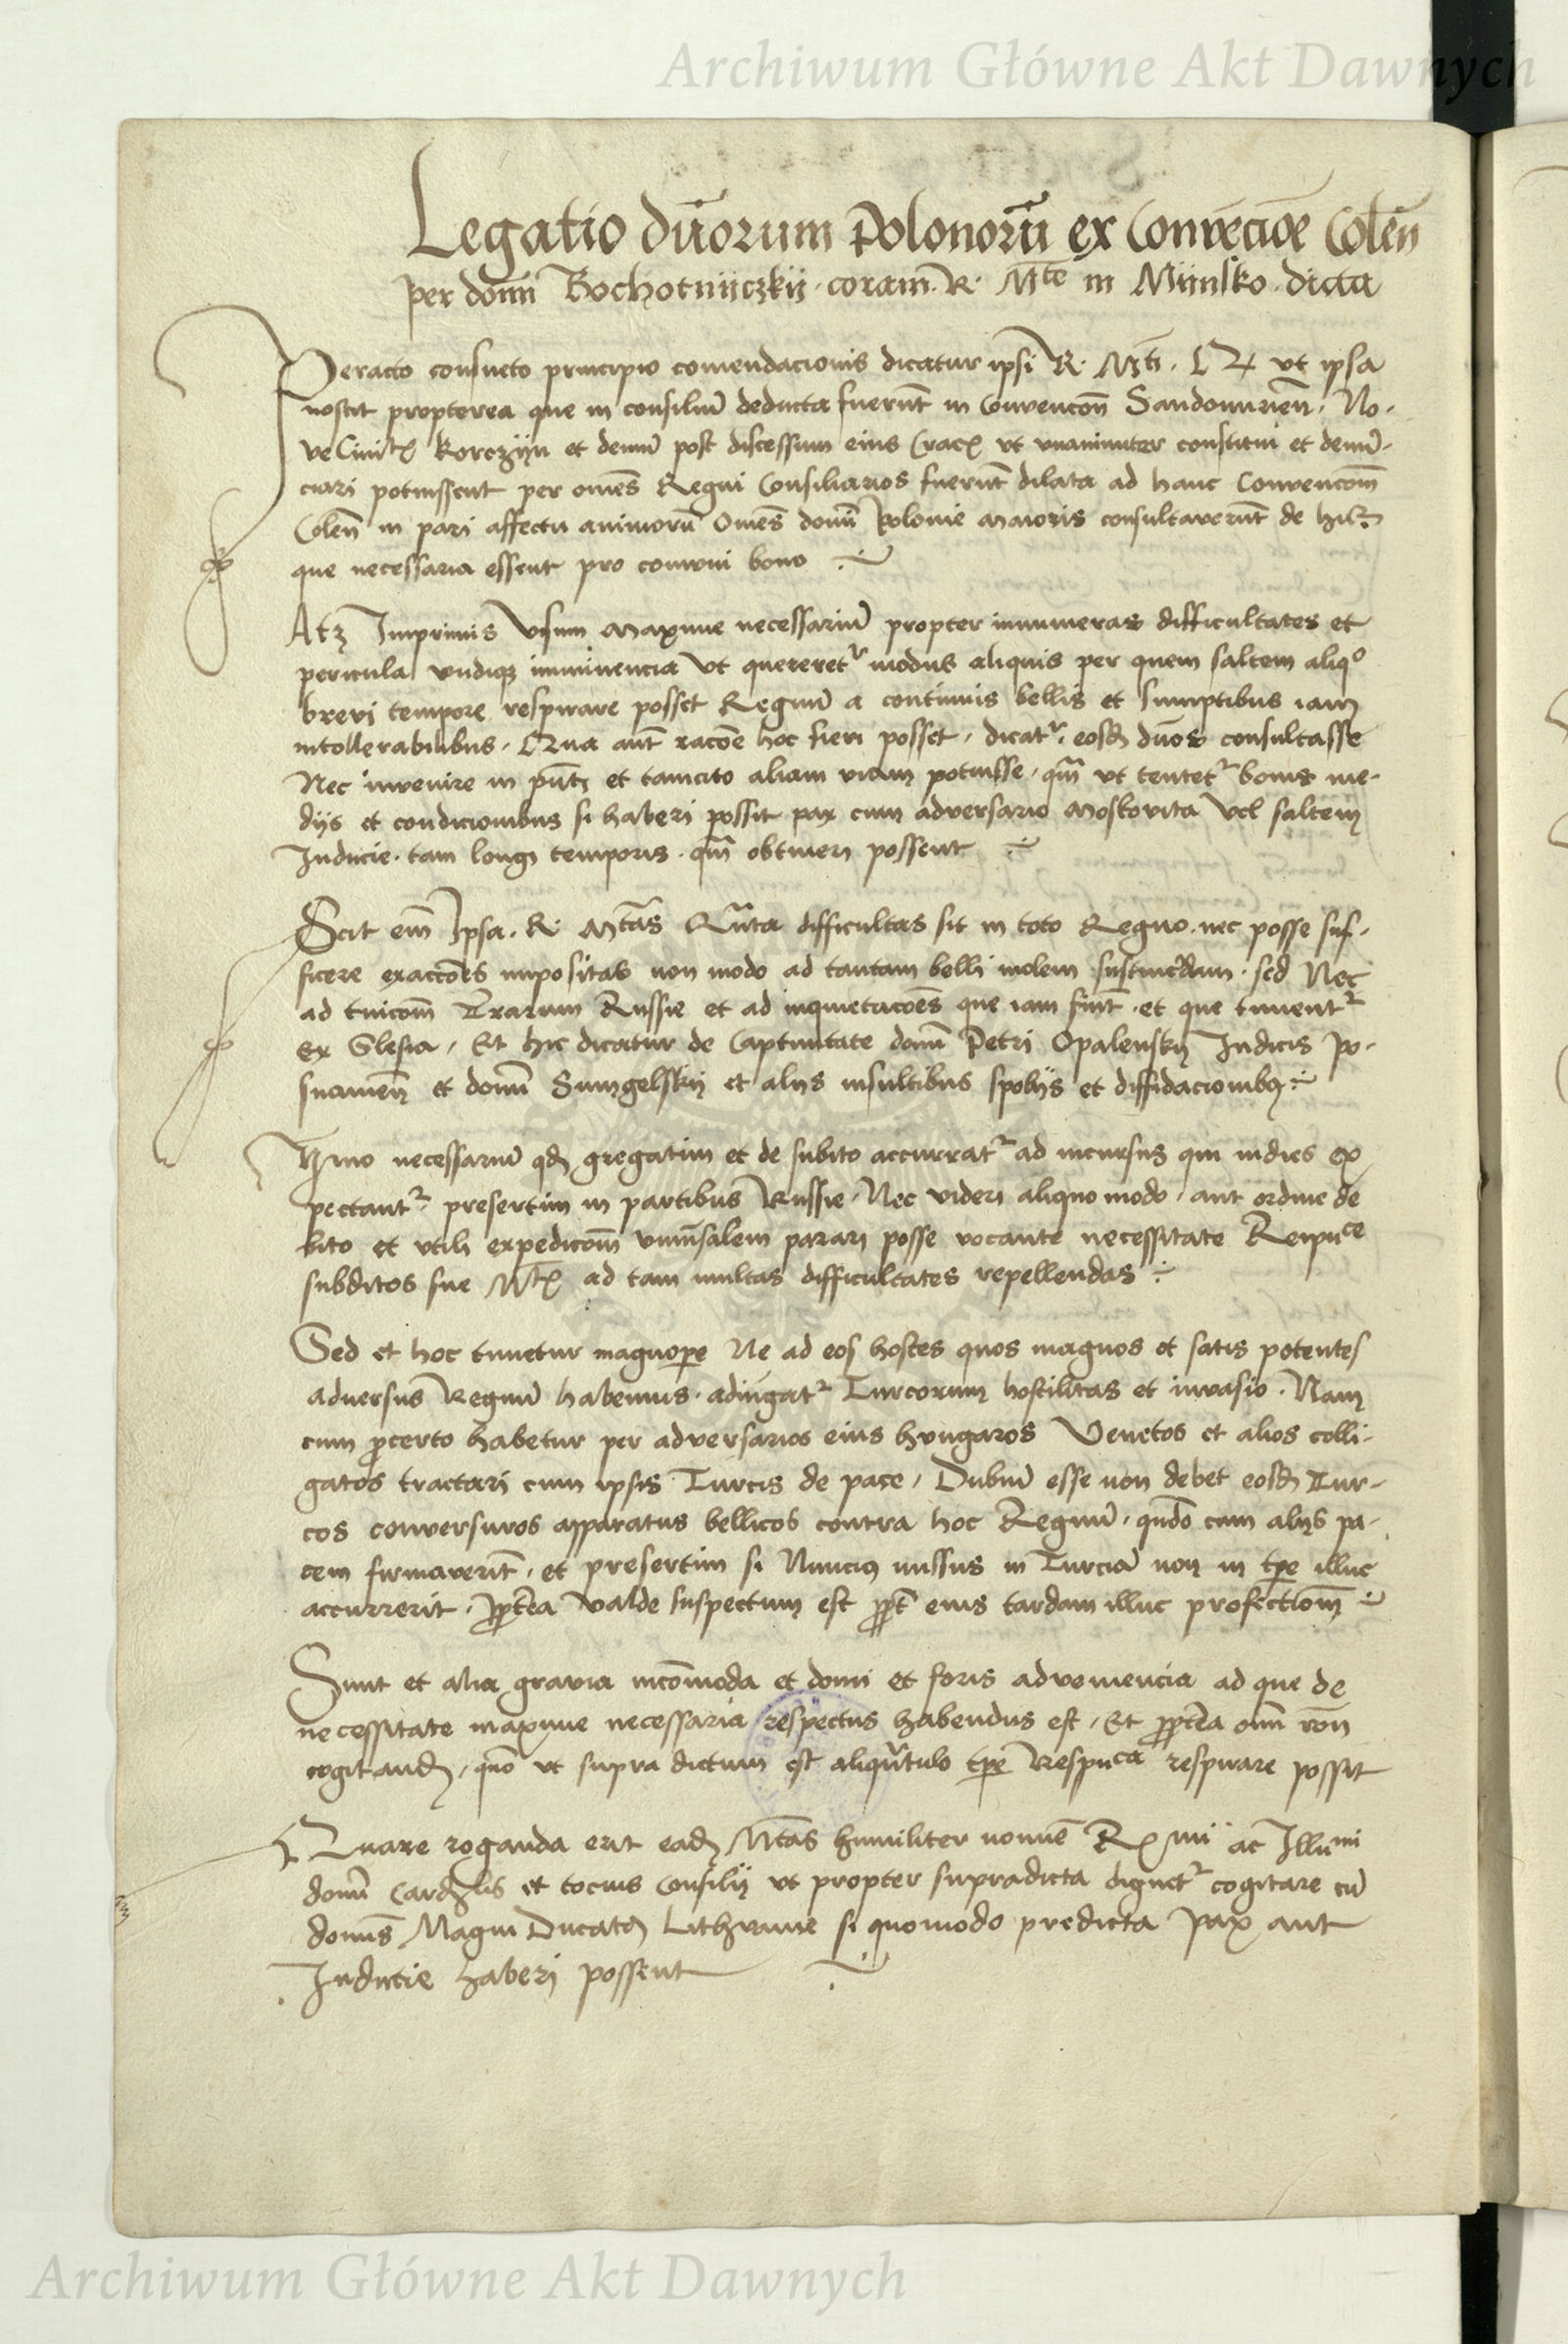 Archiwum Główne Akt Dawnych
Legatio dn̄orum Polonorū ex Convēcioē Colēn
per dom̄ Bochotnijczkij · coram · R · Mte in Mijnsko · dicta
Peracto consueto principio comendacionis dicatur ipsi R · Mti · ut ipsa
noscit propterea que in consiliū deducta fuerūt in Convencoñ Sandomirieñ · No-
ve Civitₜ Korczijn et demū post discessum eius Cracₜ ut unanimiter constitui et denū-
ciari potuissent per omēs Regni Consiliarios fuerūt dilata ad hanc Convencom̄
Coleñ in pari affectu animorū Omēs domī Polonie Maioris consultaverūt de his
que necessaria essent pro comuni bono
Atqꝫ Imprimis Visum Maxime necessariū propter innumeras difficultates et
pericula undiqꝫ imminencia Ut quereret᷑ modus aliquis per quem saltem aliqº
brevi tempore respirare posset Regnū a continuis bellis et sumptibus iam
intollerabilibus · Qua aut̄ racōe hoc fieri posset · dicat᷑ eosdꝫ dn̄os consultasse
Nec invenire in pn̄tꝫ et tamcito aliam viam potuisse · qm̄ ut tentet᷑ bonis me-
dijs et condicionibus si haberi possit pax cum adversario Moskovita Vel saltem
Inducie · tam longi temporis · qm̄ obtineri possent
Scit em̄ Ipsa · R · Mtas Quāta difficultas sit in toto Regno · nec posse suf-
ficere exaccōes impositas non modo ad tantam belli molem sustinēdam · sed Nec
ad tuicom̄ Trarum Russie et ad inquietacōes que iam fiūt · et que timent᷑
ex Slesia · Et hic dicatur de Captivitate domī Petri Opalenskij Iudicis Po-
snanieñ et domī Sumgelskij et alijs insultibus spolijs et diffidacionibꝫ
Ymo necessariū qdꝫ gregatim et de subito accurrat᷑ ad incursus qui indies ex
pectant᷑ presertim in partibus Russie · Nec videri aliquo modo · aut ordine de
bito et utili expedicom̄ univ̄salem parari posse vocante necessitate Reipuce
subditos sue Mtₜ ad tam multas difficultates repellendas
Sed et hoc timetur magnopere Ne ad eos hostes quos magnos et satis potentes
adversus Regnū habemus · adiūgat᷑ Turcorum hostilitas et invasio · Nam
cum ꝓcerto habetur per adversarios eius Hungaros Venetos et alios colli-
gatos tractari cum ipsis Turcis de pace · Dubiū esse non debet eosdꝫ Tur-
cos conversuros apparatus bellicos contra hoc Regnū · qn̄do cum alijs pa-
cem firmaverīt · et presertim si Nunciꝫ missus in Turciā non in tp̄e illuc
accurrerit · ꝓpt̄ea Valde suspectum est ꝓpt̄ eius tardam illuc profectiom̄
Sunt et alia gravia incōmoda et domi et foris adveniencia ad que de
necessitate maxime necessaria respectus habendus est · Et ꝓpt̄ea om̄i roñ
cogitandꝫ · quō ut supra dictum est aliqūtulo tp̄e Respuca respirare possit
Quare roganda erit eadꝫ Mtas humiliter nomīe Rₓmi ac Illumi
domī Cardlis et tocius Consilij ut propter supradicta dignet᷑ cogitare cū
domīs Magni Ducatꝫ Lithvanie si quomodo predicta Pax aut
Inducie haberi possent
Archiwum Główne Akt Dawnych